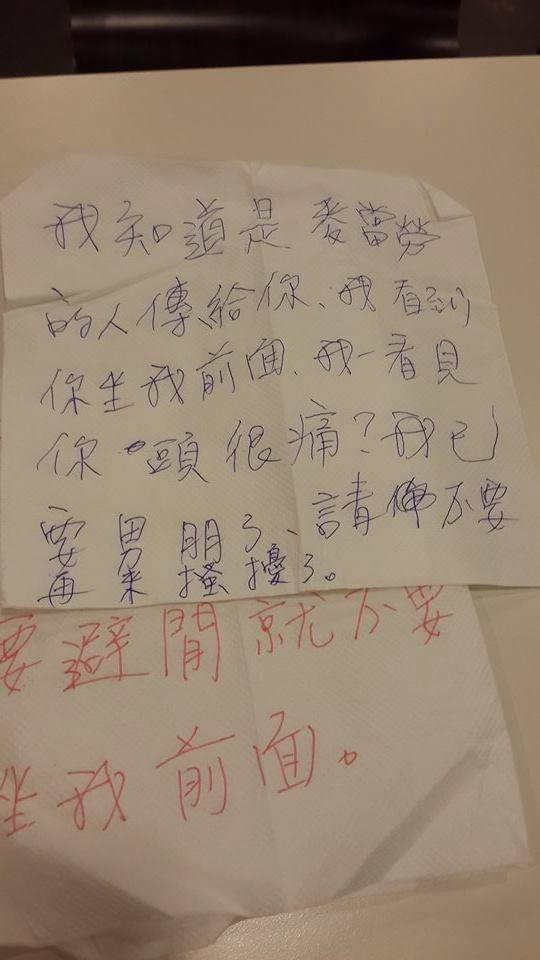 我知道是麥當勞
的人傳給你、我看到
你坐我前面、我一看見
你頭很痛?我已
要累朋了、請不要
再來搔擾了。
要避開就不要
坐我前面。